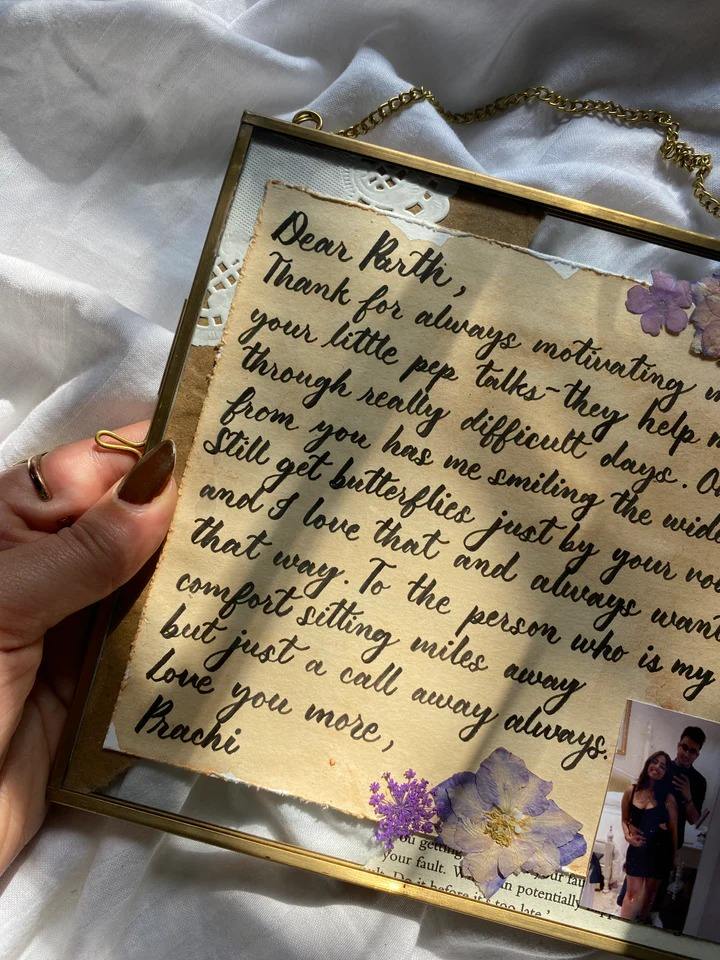 Dear Parth,
Thank for always motivating
your little pep talks - they help
through really difficult days.
from you has me smiling the
Still get butterflies just by your
and I love that and always want
that way. To the person who is my
comfort sitting miles away
but just a call away always.
Love you more,
Prachi
getting
your fault.
potentially
Do it before it's too late.'